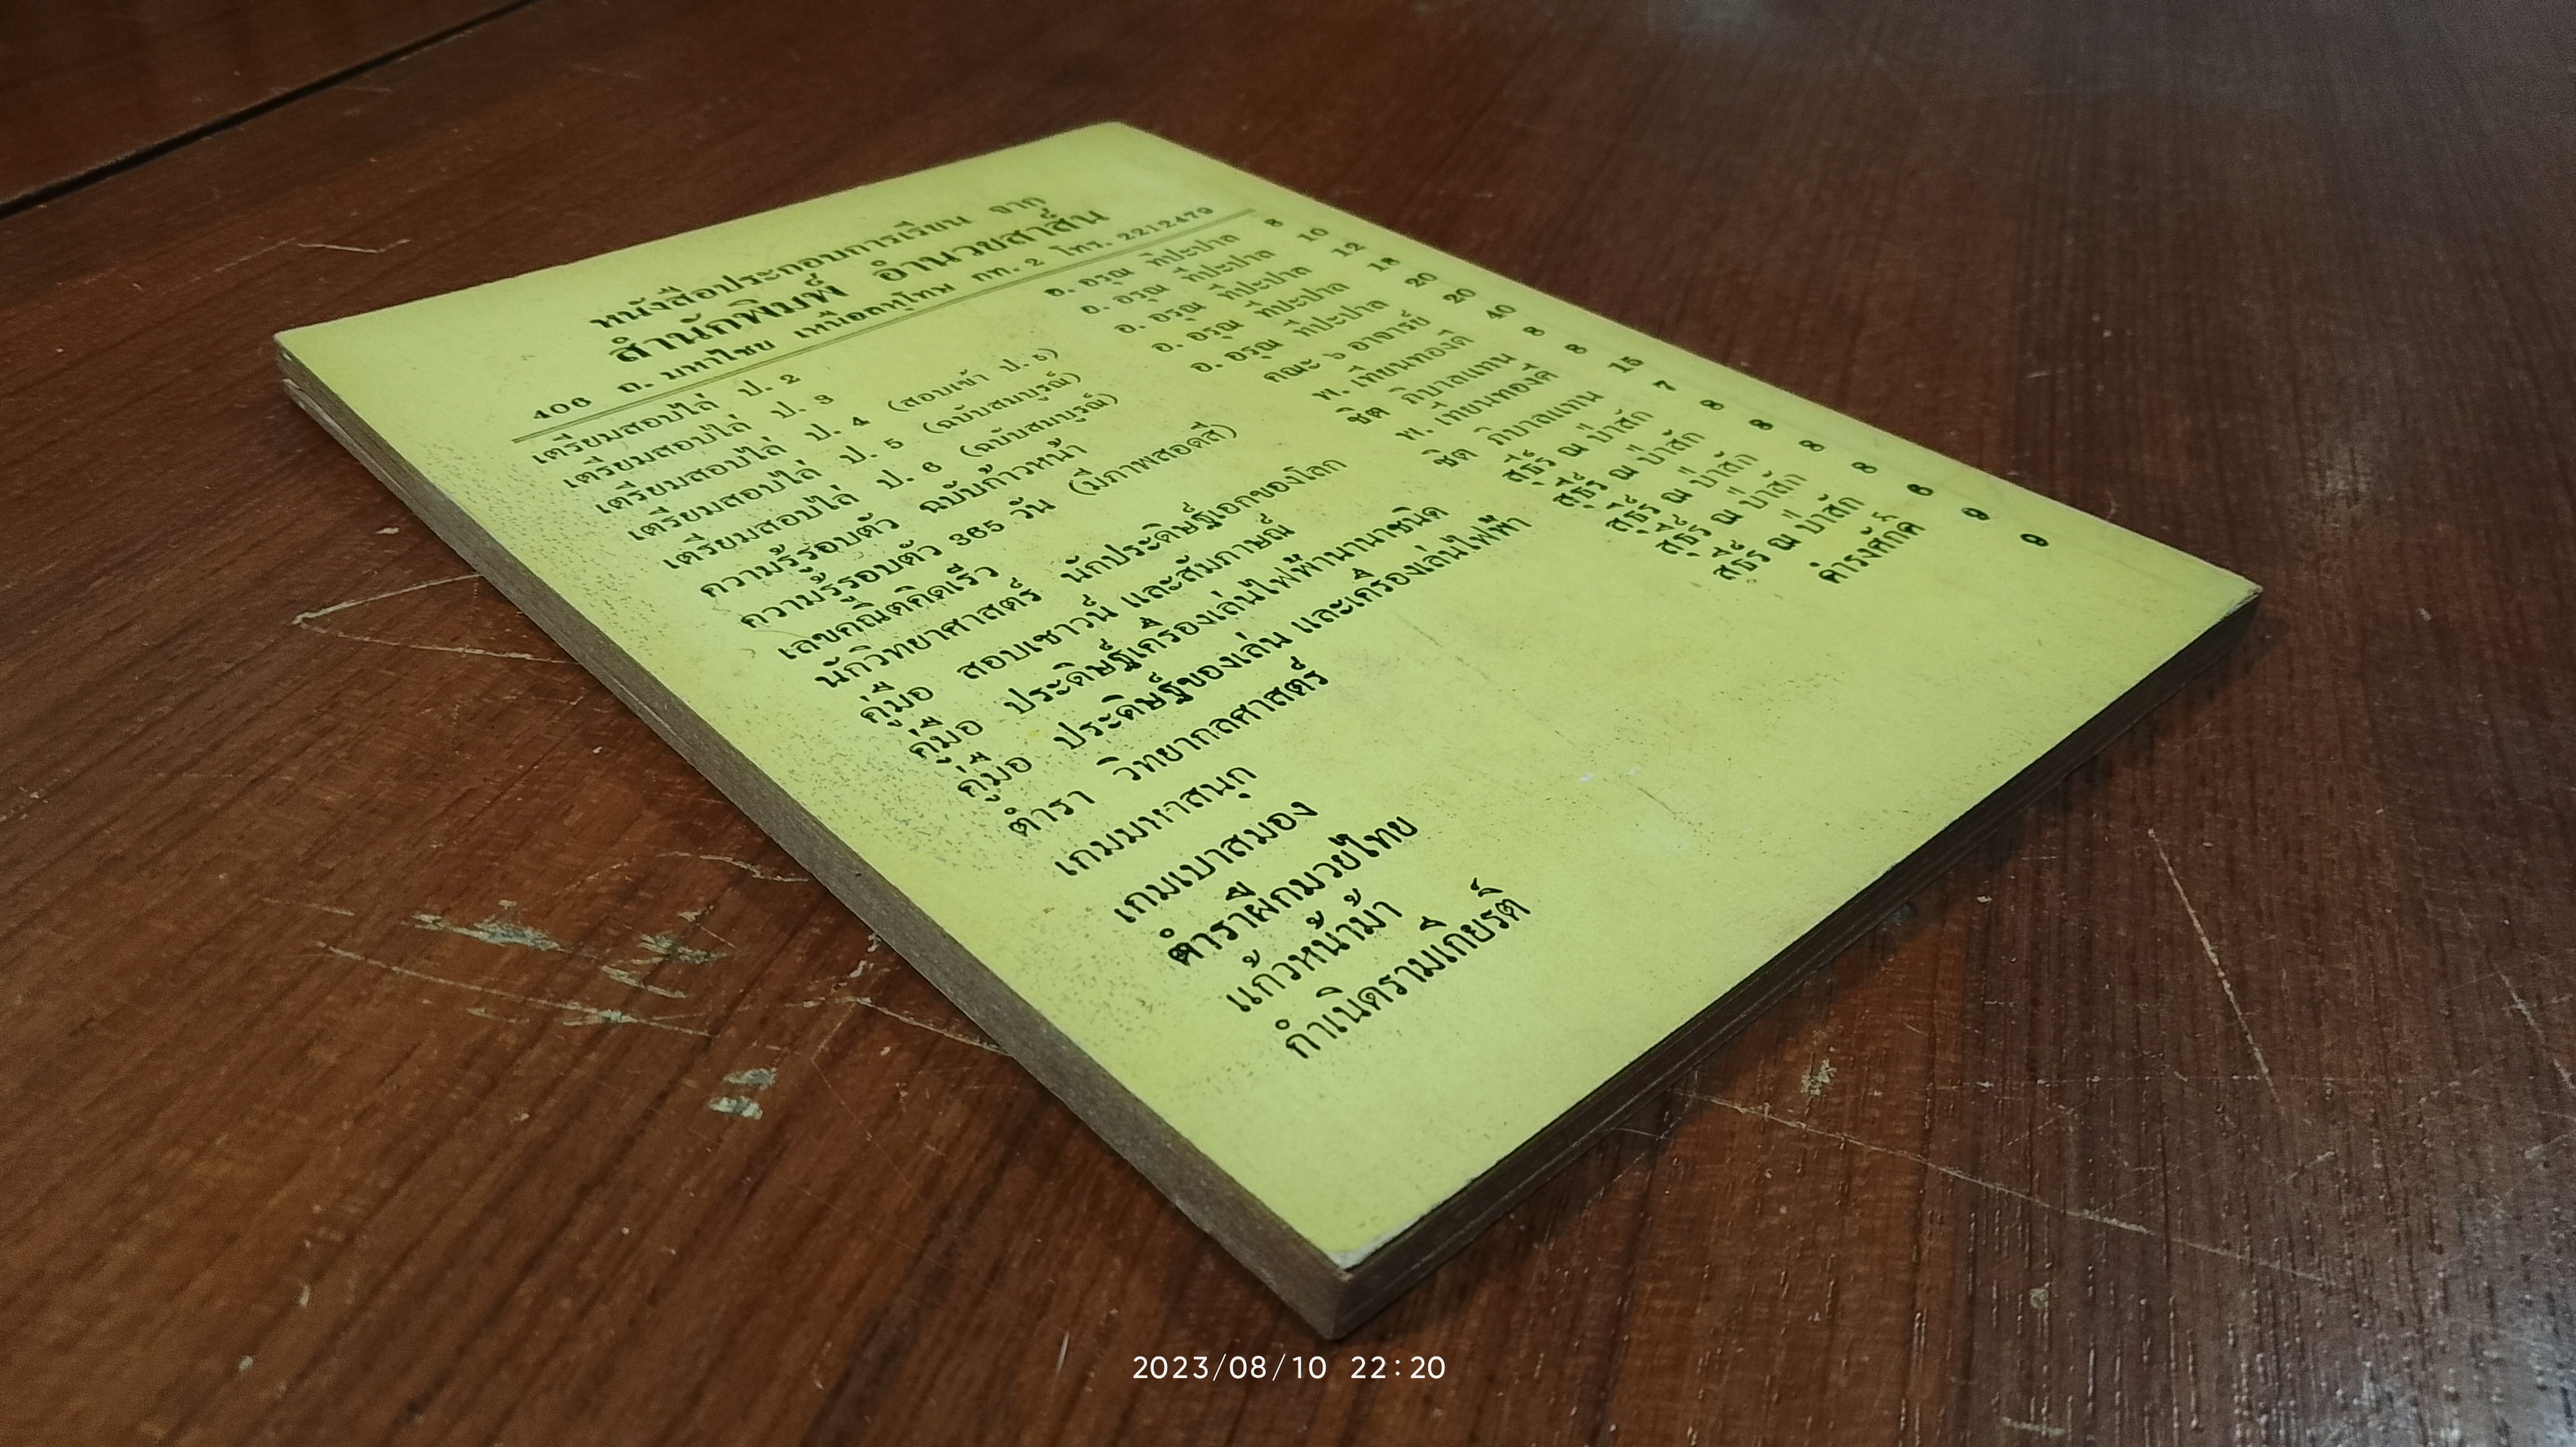 หนังสือประกอบการเรียน จาก
สำนักพิมพ์ อำนวยสาส์น
406 ถ. มหาไชย เหนือสหอุไทย กท. 2 โทร. 2212479
เตรียมสอบไล่ ป. 2 อ. อรุณ ทีปะปาล 8
เตรียมสอบไล่ ป. 3 อ. อรุณ ทีปะปาล 10
เตรียมสอบไล่ ป. 4 (สอบเข้า ป. 5) อ. อรุณ ทีปะปาล 12
เตรียมสอบไล่ ป. 5 (ฉบับสมบูรณ์) อ. อรุณ ทีปะปาล 18
เตรียมสอบไล่ ป. 6 (ฉบับสมบูรณ์) อ. อรุณ ทีปะปาล 20
ความรู้รอบตัว ฉบับก้าวหน้า คณะ ๖ อาจารย์ 20
ความรู้รอบตัว 365 วัน (มีภาพสอดสี) พ. เทียนทองดี 40
เลขคณิตคิดเร็ว ชิต ภิบาลแทน 8
นักวิทยาศาสตร์ นักประดิษฐ์เอกของโลก พ. เทียนทองดี 8
คู่มือ สอบเชาวน์ และสัมภาษณ์ ชิต ภิบาลแทน 15
คู่มือ ประดิษฐ์เครื่องเล่นไฟฟ้านานาชนิด สุธีร์ ณ ป่าสัก 7
คู่มือ ประดิษฐ์ของเล่น และเครื่องเล่นไฟฟ้า สุธีร์ ณ ป่าสัก 8
ตำรา วิทยากลศาสตร์ สุธีร์ ณ ป่าสัก 8
เกมมหาสนุก สุธีร์ ณ ป่าสัก 8
เกมเบาสมอง สุธีร์ ณ ป่าสัก 8
ตำราฝึกมวยไทย ดำรงศักดิ์ 6
แก้วหน้าม้า 9
กำเนิดรามเกียรติ์ 9
2023/08/10 22:20